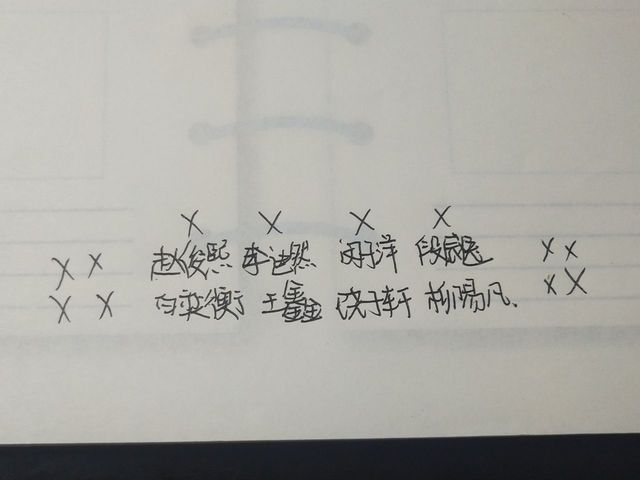 X X X X
X X 赵俊熙 李迪然 闵子洋 段宸 X X
X X 白奕衡 王鑫 饶子轩 柳陽凡. X X